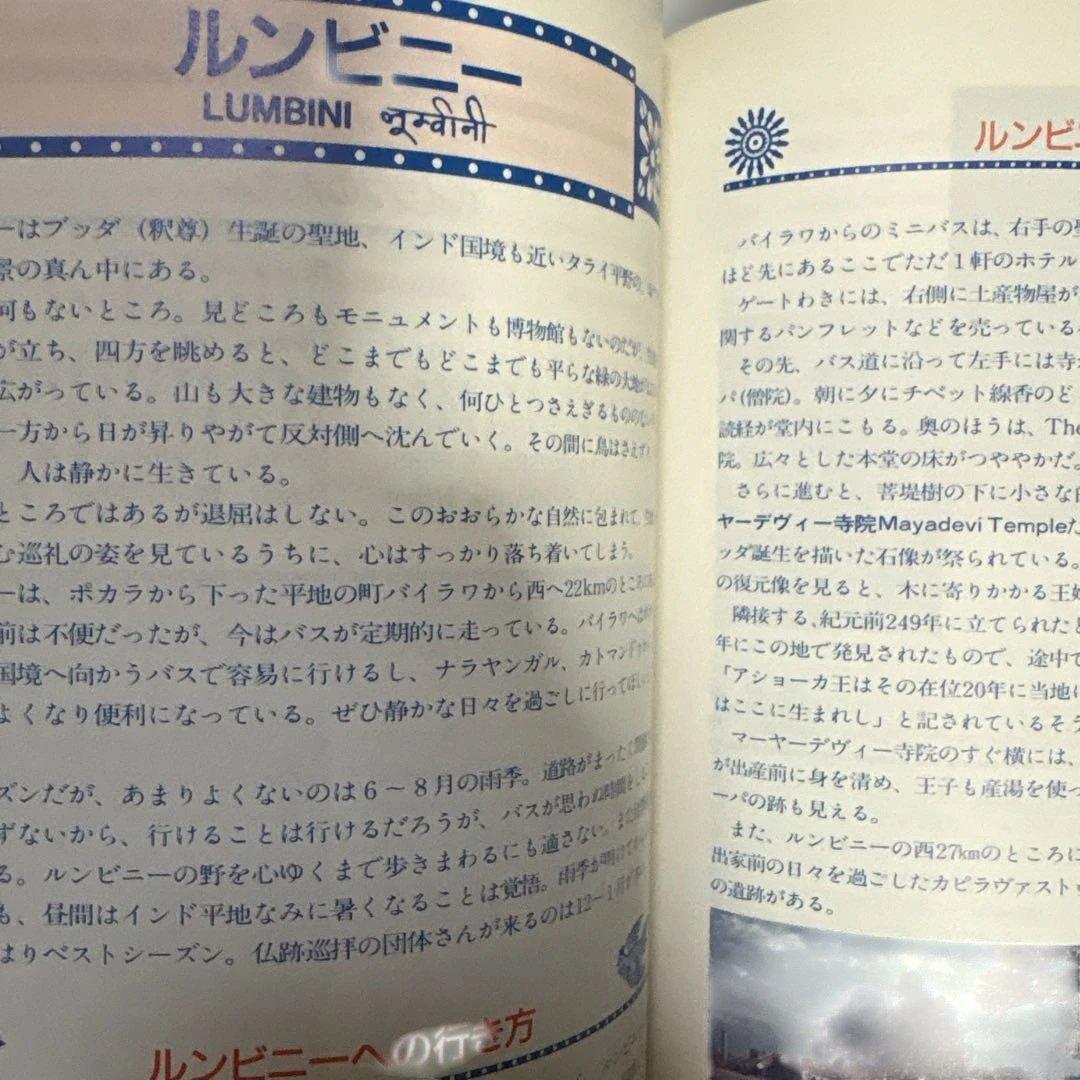 ルンビニー
LUMBINI लूम्वीनी
ーはブッダ(釈尊)生誕の聖地、インド国境も近いタライ平野の
景の真ん中にある。
何もないところ。見どころもモニュメントも博物館もないのだが、
が立ち、四方を眺めると、どこまでもどこまでも平らな緑の大地が
広がっている。山も大きな建物もなく、何ひとつさえぎるもののない
一方から日が昇りやがて反対側へ沈んでいく。その間に鳥はさえずり
人は静かに生きている。
ところではあるが退屈はしない。このおおらかな自然に包まれて、
む巡礼の姿を見ているうちに、心はすっかり落ち着いてしまう。
ーは、ポカラから下った平地の町バイラワから西へ22kmのところに
前は不便だったが、今はバスが定期的に走っている。バイラワへは
国境へ向かうバスで容易に行けるし、ナラヤンガル、カトマンドゥ
よくなり便利になっている。ぜひ静かな日々を過ごしに行ってほしい
ズンだが、あまりよくないのは6〜8月の雨季。道路がまったく
ずないから、行けることは行けるだろうが、バスが思わぬ時間を
る。ルンビニーの野を心ゆくまで歩きまわるにも適さない。また
も、昼間はインド平地なみに暑くなることは覚悟。雨季が明けて
はりベストシーズン。仏跡巡拝の団体さんが来るのは12〜1月
ルンビニーへの行き方
ルンビニ
バイラワからのミニバスは、右手の聖
ほど先にあるここでただ1軒のホテル
ゲートわきには、右側に土産物屋が
関するパンフレットなどを売っている
その先、バス道に沿って左手には寺
パ(僧院)。朝に夕にチベット線香のど
読経が堂内にこもる。奥のほうは、The
院。広々とした本堂の床がつややかだ。
さらに進むと、菩提樹の下に小さな白
ヤーデヴィー寺院Mayadevi Templeだ
ッダ誕生を描いた石像が祭られている。
の復元像を見ると、木に寄りかかる王妃
隣接する、紀元前249年に立てられたと
年にこの地で発見されたもので、途中で
「アショーカ王はその在位20年に当地に
はここに生まれし」と記されているそう
マーヤーデヴィー寺院のすぐ横には、
が出産前に身を清め、王子も産湯を使っ
ーパの跡も見える。
また、ルンビニーの西27kmのところに
出家前の日々を過ごしたカピラヴァスト
の遺跡がある。